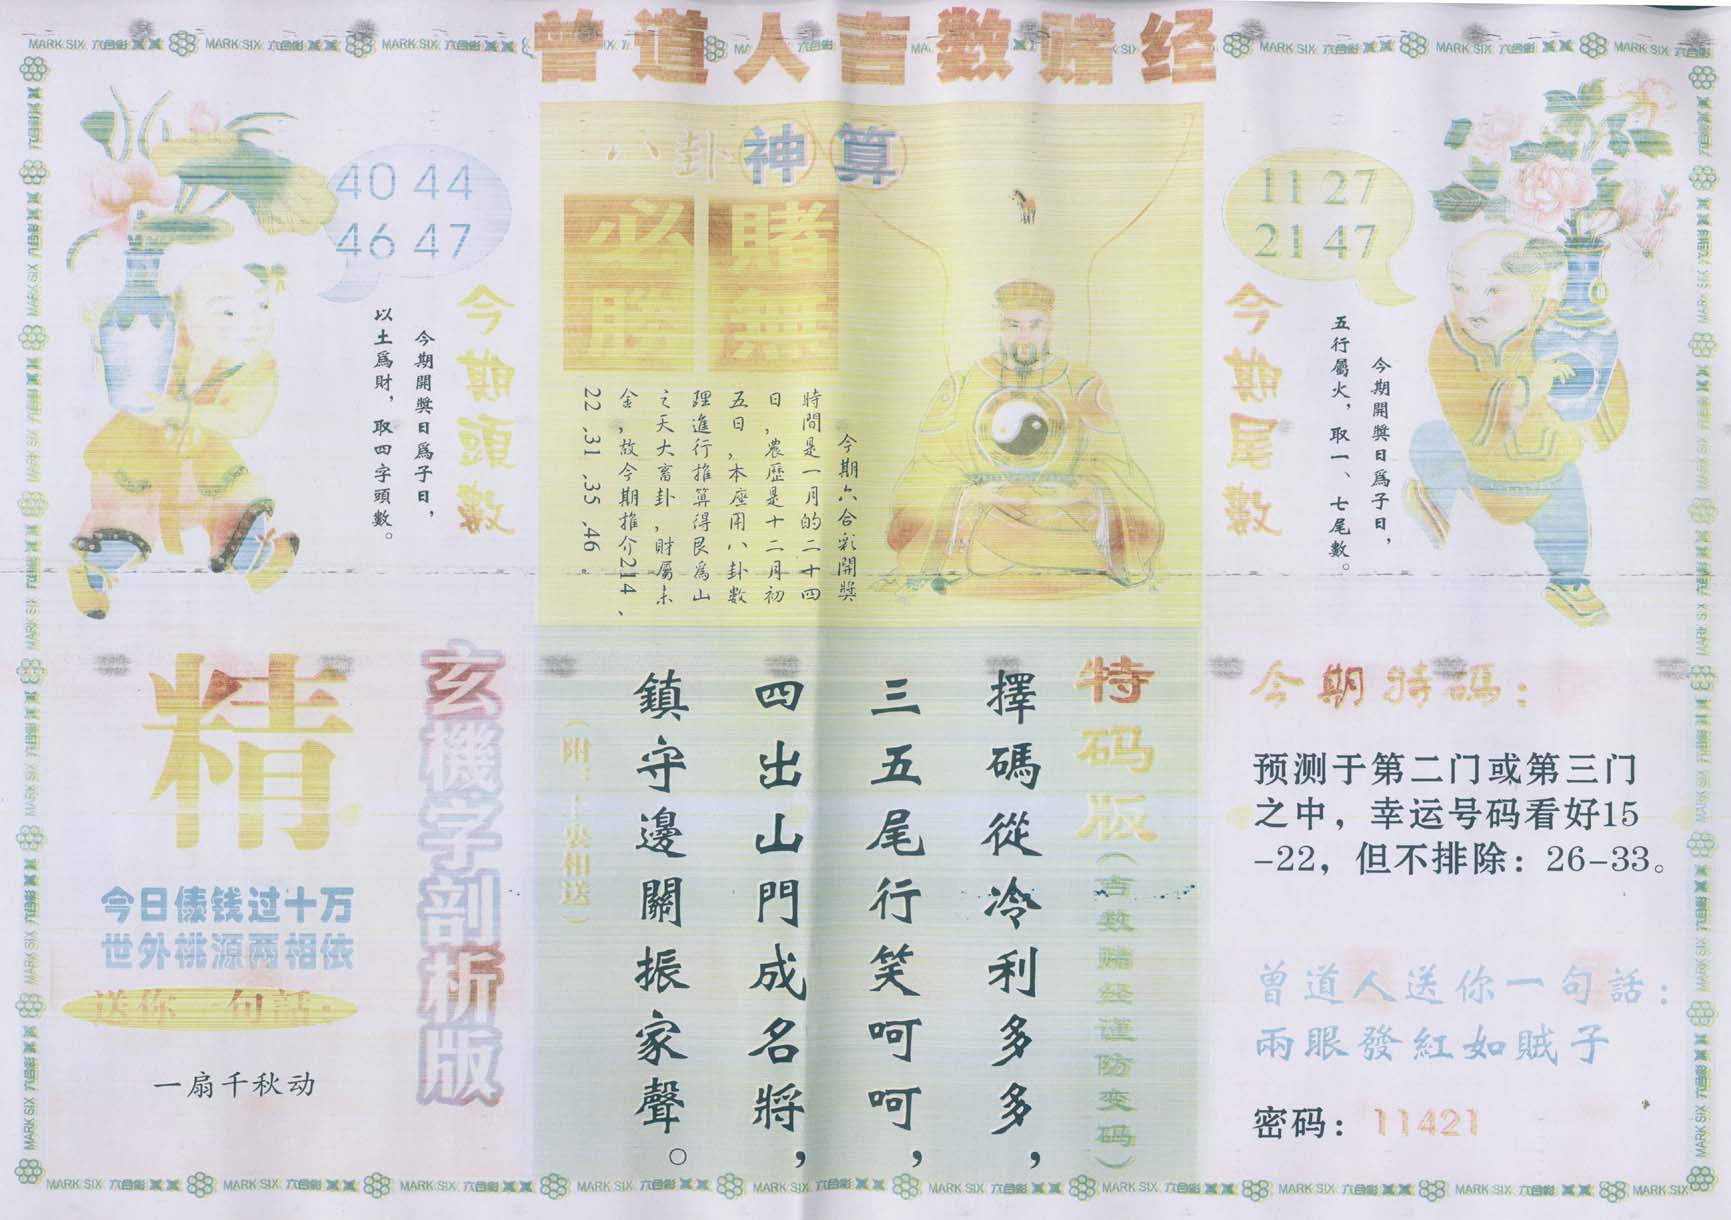 曾道人吉数赌经
八卦神算
賭無
必勝
今期六合彩開獎
時間是一月的二十四
日，農歷是十二月初
五日，本座用八卦数
理進行推算得艮爲山
之天大畜卦，財屬未
金，故今期推介214、
22、31、35、46。
40 44
46 47
今期頭數
今期開獎日爲子日，
以土爲財，取四字頭數。
11 27
21 47
今期尾數
今期開獎日爲子日，
五行屬火，取一、七尾數。
玄機字剖析版
精
今日俵钱过十万
世外桃源两相依
送你一句話：
一扇千秋动
特码版(吉数赌经谨防变码)
擇碼從冷利多多，
三五尾行笑呵呵，
四出山門成名將，
鎮守邊關振家聲。
今期特碼：
预测于第二门或第三门
之中，幸运号码看好15
-22，但不排除：26-33。
曾道人送你一句話：
兩眼發紅如賊子
密码：11421
MARK SIX 六合彩